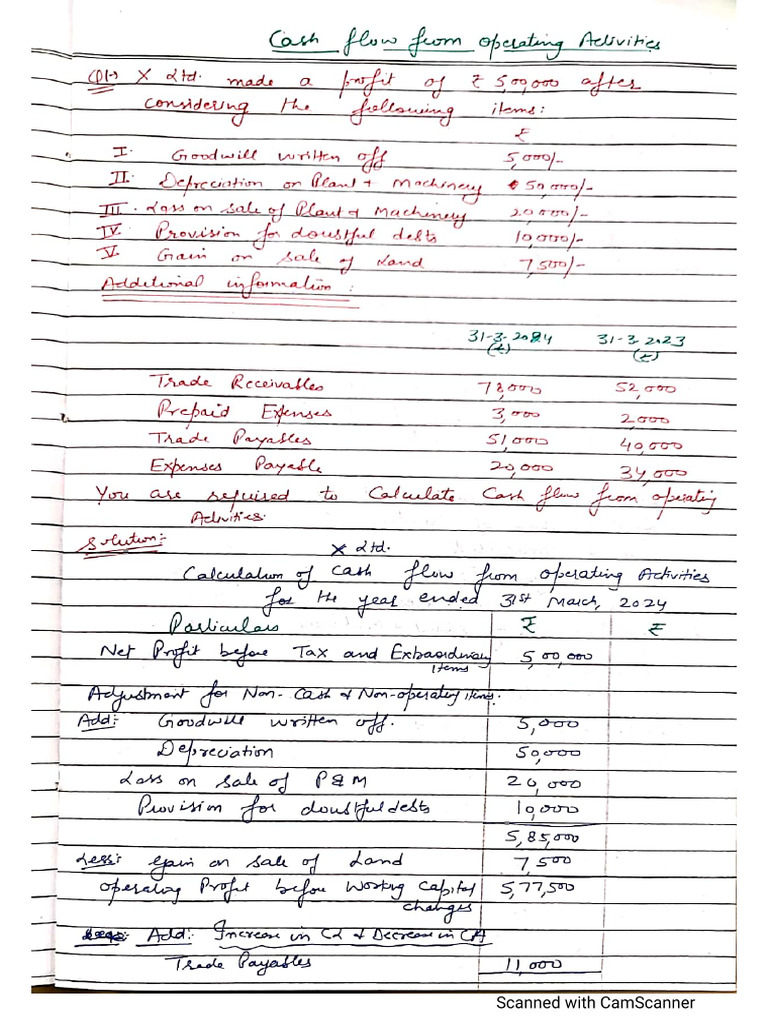 Cash flow from operating Activities
Q1.) X Ltd. made a profit of ₹ 5,00,000 after
considering the following items:
₹
I. Goodwill written off 5,000/-
II. Depreciation on Plant & Machinery 50,000/-
III. Loss on sale of Plant & Machinery 20,000/-
IV. Provision for doubtful debts 10,000/-
V. Gain on sale of Land 7,500/-
Additional information:
31-3-2024 31-3-2023
(₹) (₹)
Trade Receivables 78,000 52,000
Prepaid Expenses 3,000 2000
Trade Payables 51,000 40,000
Expenses Payable 20,000 34,000
You are required to Calculate Cash flow from operating
Activities.
Solution:-
X Ltd.
Calculation of Cash flow from operating Activities
for the year ended 31st March, 2024
Particulars ₹ ₹
Net Profit before Tax and Extraordinary
items 5,00,000
Adjustment for Non-Cash & Non-operating items:
Add:- Goodwill written off. 5,000
Depreciation 50,000
Loss on sale of P&M 20,000
Provision for doubtful debts 10,000
5,85,000
Less: Gain on sale of Land 7,500
Operating Profit before Working Capital 5,77,500
changes
Add: Increase in CL & Decrease in CA
Trade Payables 11,000
Scanned with CamScanner